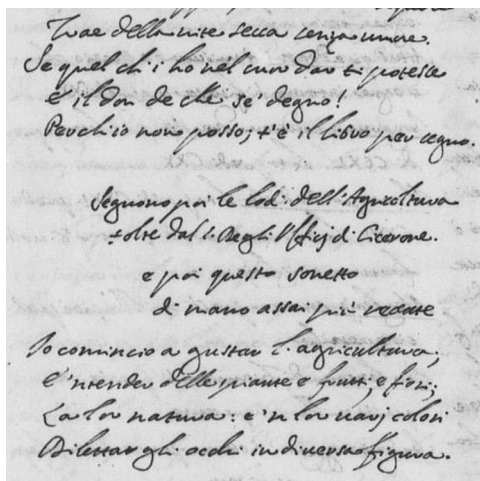 Trae della vite secca senza umore.
Se quel ch'i ho nel cuor dar ti potessi
è il don de che se' degno!
Perch'io non posso, t'è il libro per segno.
Seguono poi le lodi dell'Agricoltura
tolte dal l. degli Ufficj di Cicerone.
e poi questo sonetto
di mano assai più recente
Io comincio a gustar l'agricultura;
E 'ntender delle piante e frutti, e fiori;
La lor natura: e 'n lor varj colori
Dilettar gli occhi in diversa figura.